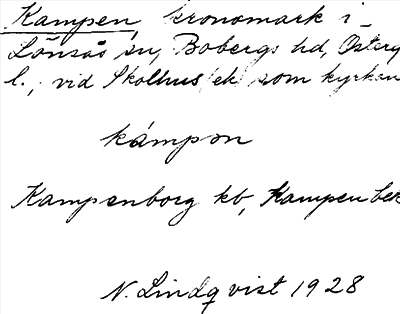 Kampen, kronomark i
Lönsås sn, Bobergs hd, Österg
l., vid Skolhus (ek) som kyrkan
kámpən
Kampenborg kb, Kampen bek
N. Lindqvist 1928